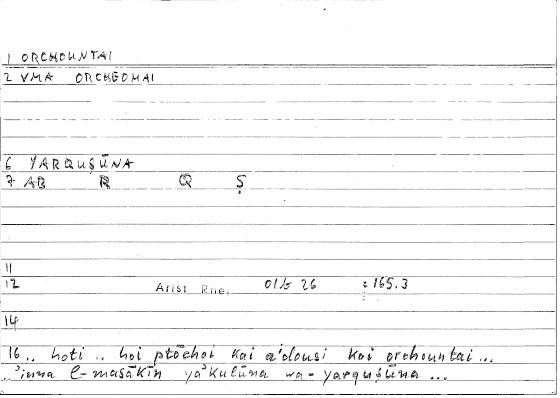 1 ORCHOUNTAI
2 VMA ORCHEOMAI
6 YARQUṢŪNA
7 AB R Q Ṣ
11
12 Arist Rhet 01b 26 : 165.3
14
16 .. hoti .. hoi ptōchoi kai a'dousi kai orchountai ...
..'inna l-masākīn ya'kulūna wa-yarquṣūna ...